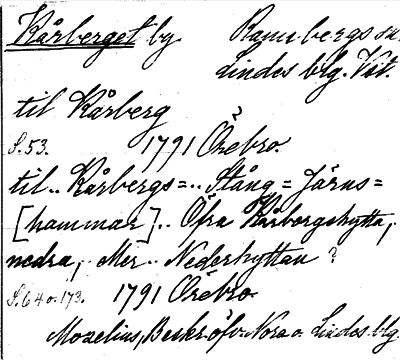 Kårberget by Rambergs sn.
Lindes blg. Vst.
til Kårberg
S. 53. 1791 Örebro.
til.. Kårbergs=.. Stång = Järns=
[hammar].. Öfra Kårbergshytta,
nedra, Mer.. Nederhyttan ?
S. 64 o. 173. 1791 Örebro
Mozelius, Beskr. öfv. Nora o. Lindes. blg.